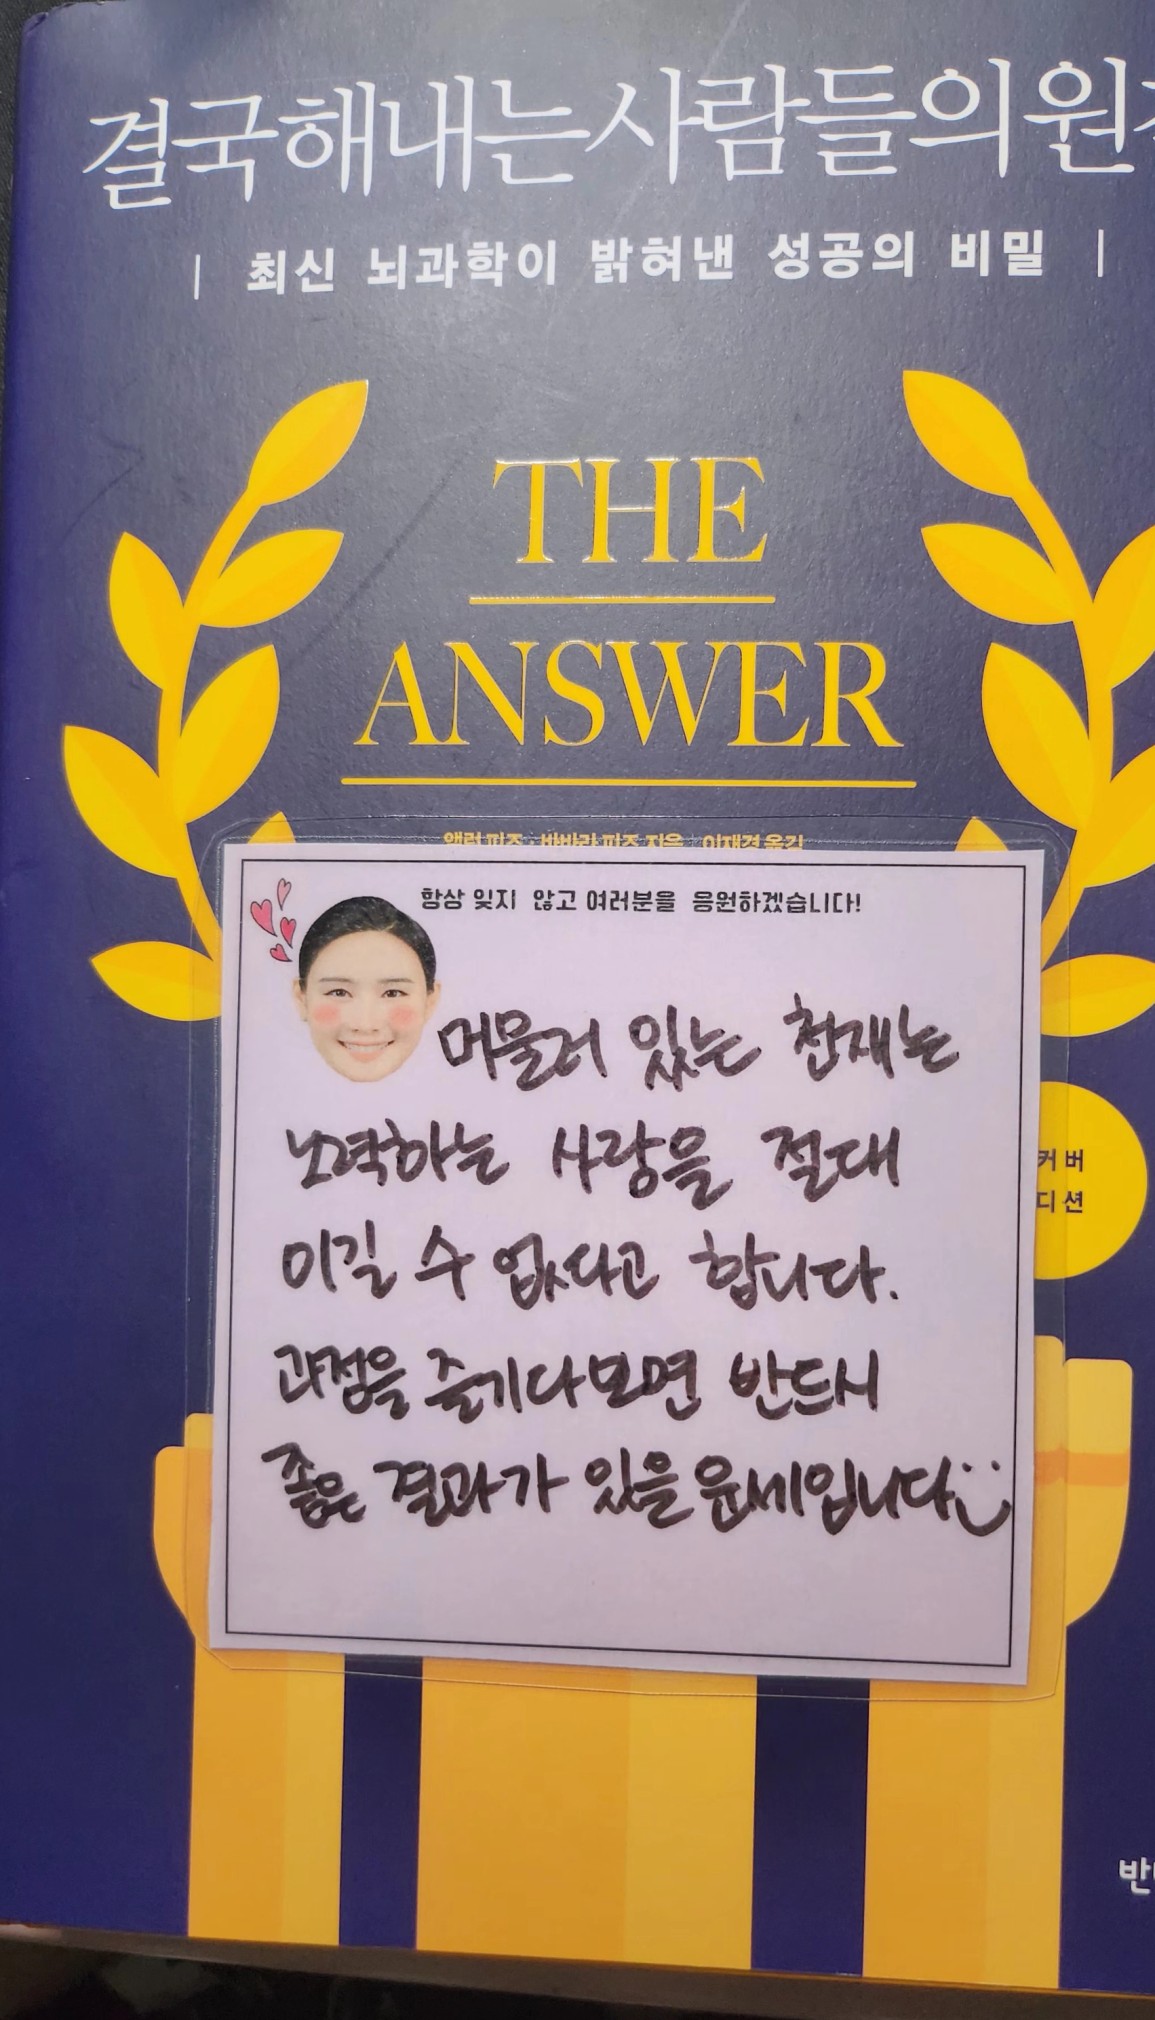 결국 해내는 사람들의 원
| 최신 뇌과학이 밝혀낸 성공의 비밀 |
THE
ANSWER
앨런 피즈 · 바바라 피즈 지음 이재경 옮김
항상 잊지 않고 여러분을 응원하겠습니다!
머물러 있는 천재는
노력하는 사람을 절대
이길 수 없다고 합니다.
과정을 즐기다보면 반드시
좋은 결과가 있을 운세입니다
커버
디션
반